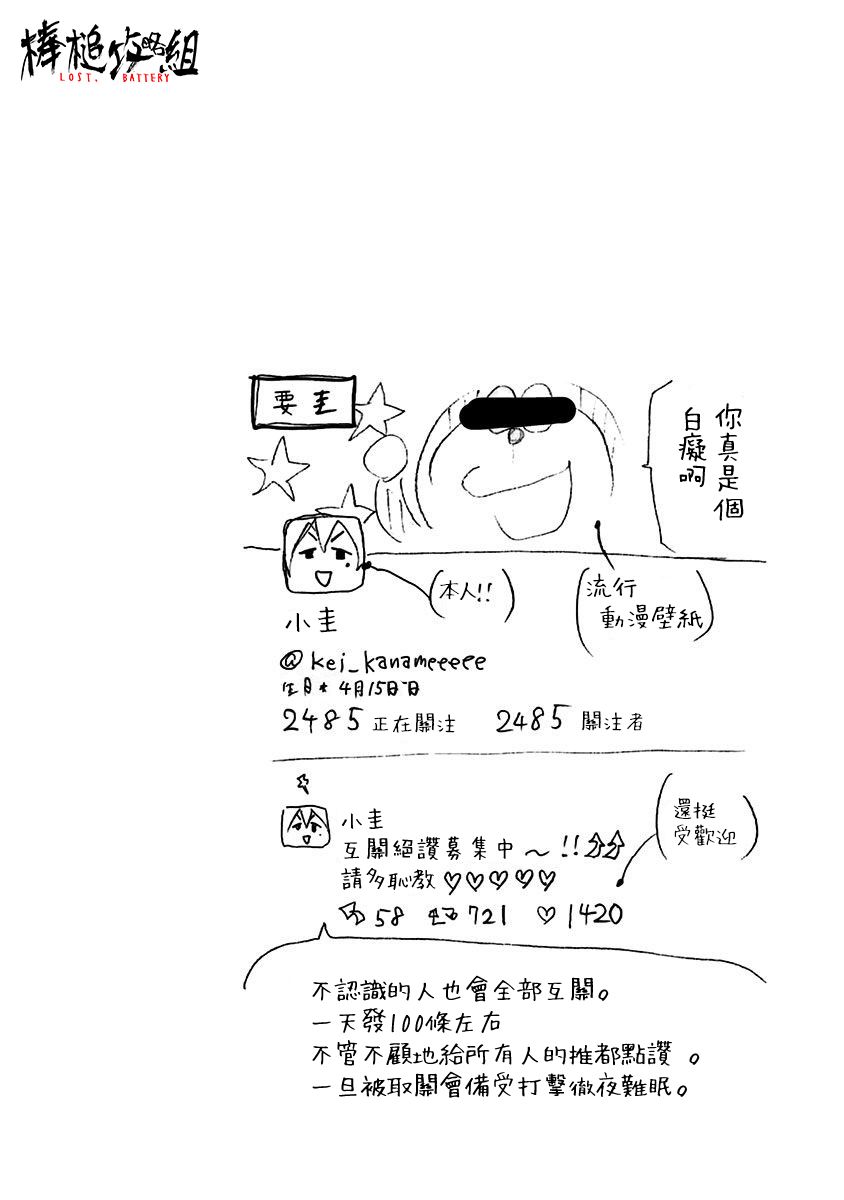 棒槌攻略組
LOST. BATTERY
要圭
你真是個
白癡啊
(本人!!)
(流行
動漫壁紙)
小圭
@kei_kanameeeee
生日★4月15日
2485 正在關注 2485 關注者
小圭
互關絕讚募集中～!!
請多恥教♡♡♡♡♡
58 721 ♡1420
(還挺
受歡迎)
不認識的人也會全部互關。
一天發100條左右
不管不顧地給所有人的推都點讚。
一旦被取關會備受打擊徹夜難眠。